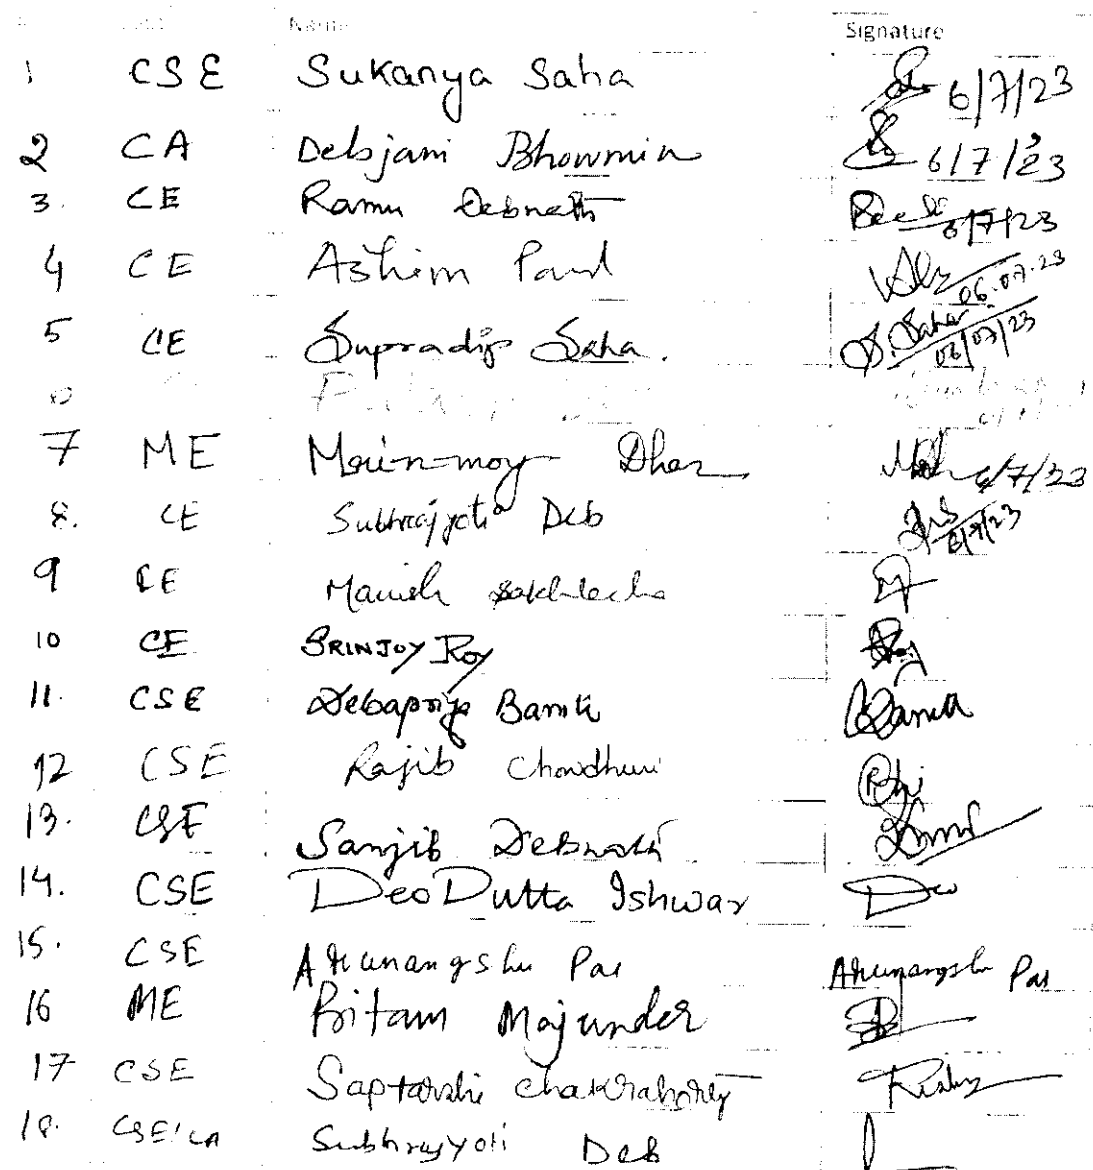 Name Signature
1 CSE Sukanya Saha 6/7/23
2 CA Debjani Bhowmik 6/7/23
3. CE Ramu Debnath 6/7/23
4 CE Ashim Paul 06.07.23
5 CE Supradip Saha. S. Saha 06/07/23
7 ME Moinmoy Dhar 6/7/23
8. CE Subhrajyoti Deb 6/7/23
9 CE Manish
10 CE SRINJOY ROY Roy
11. CSE Debapriya Banik
12 CSE Rajib Chowdhuri
13. CSE Sanjib Debnath
14. CSE Deo Dutta Ishwar Deo
15. CSE Arunangshu Pal Arunangshu Pal
16 ME Pritam Majumder
17 CSE Saptarshi Chakraborty
18. CSE/CA Subhrajyoti Deb